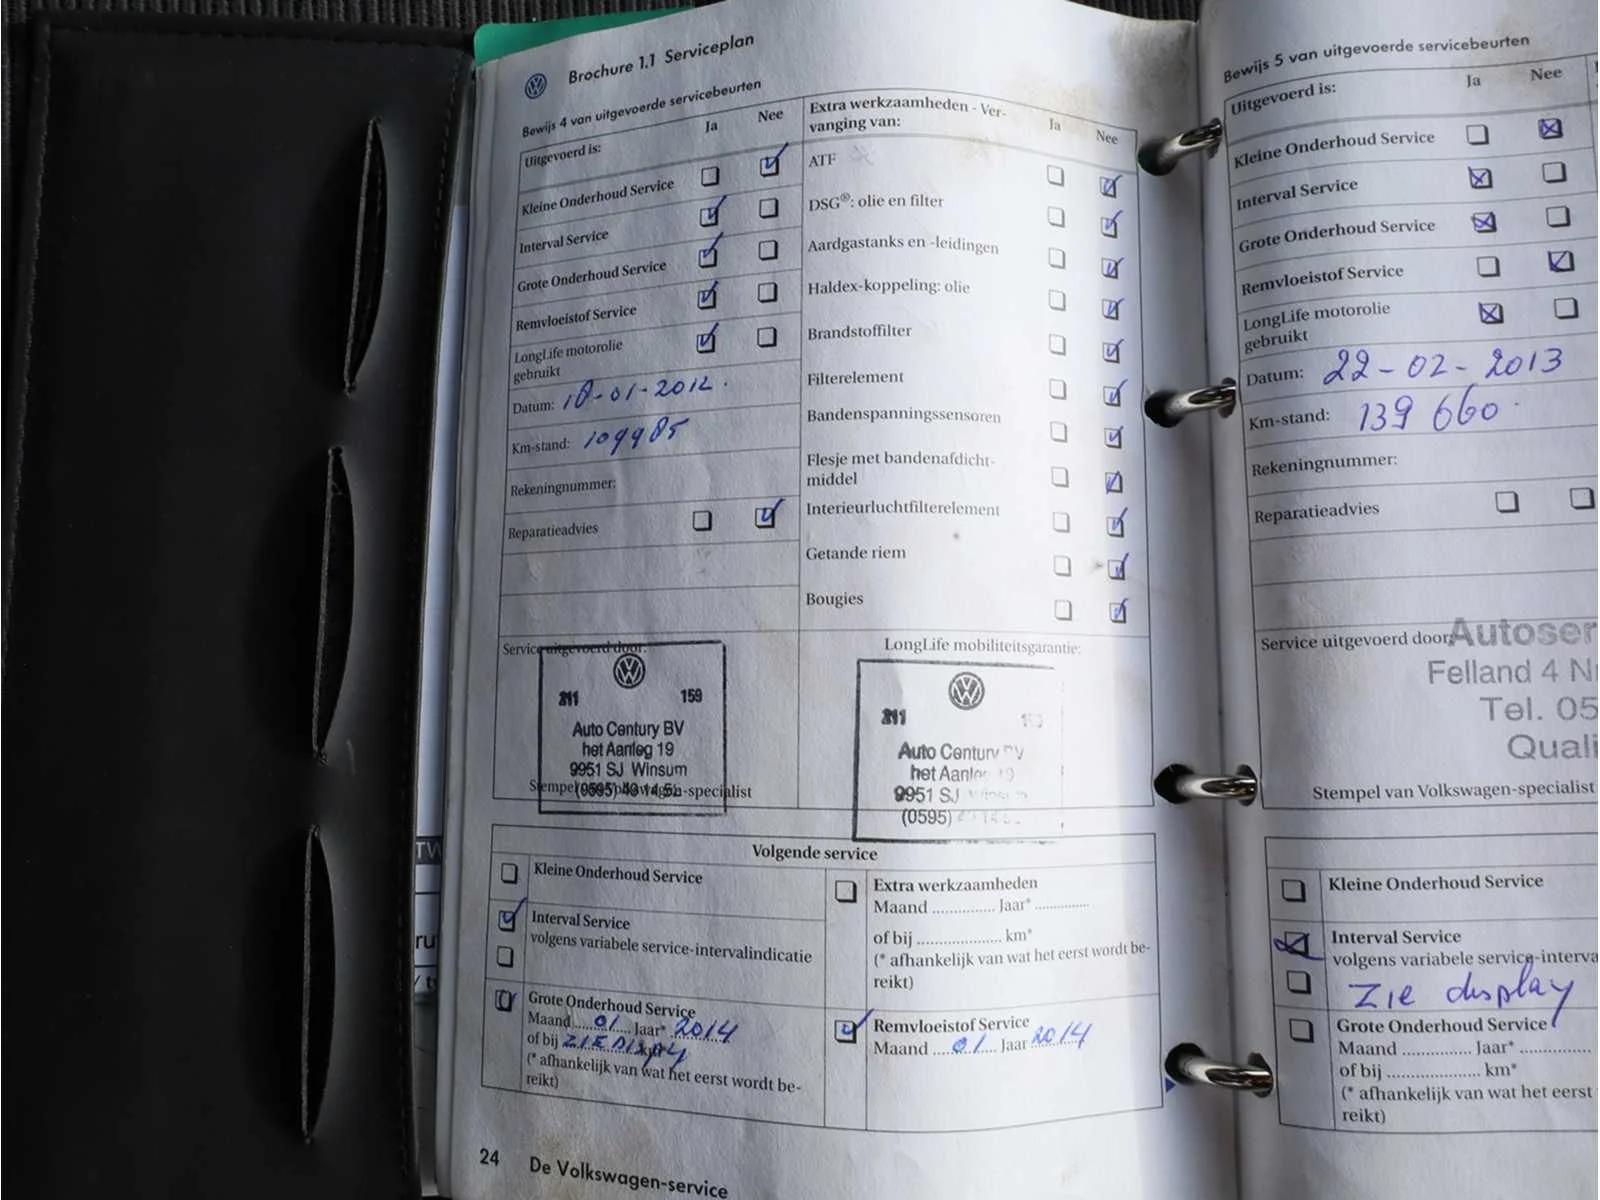 Brochure 1.1 Serviceplan
Bewijs 4 van uitgevoerde servicebeurten
Uitgevoerd is:
Ja Nee
Kleine Onderhoud Service
Interval Service
Grote Onderhoud Service
Remvloeistof Service
LongLife motorolie
gebruikt
Datum: 18-01-2012.
Km-stand: 109985
Rekeningnummer:
Reparatieadvies
Extra werkzaamheden - Ver-
vanging van:
Ja Nee
ATF
DSG®: olie en filter
Aardgastanks en -leidingen
Haldex-koppeling: olie
Brandstoffilter
Filterelement
Bandenspanningssensoren
Flesje met bandenafdicht-
middel
Interieurluchtfilterelement
Getande riem
Bougies
Service uitgevoerd door:
VW
211 159
Auto Century BV
het Aanleg 19
9951 SJ Winsum
(0595)
Stempel Volkswagen-specialist
LongLife mobiliteitsgarantie:
VW
211
Auto Century BV
het Aanleg 19
9951 SJ Winsum
(0595)
Volgende service
Kleine Onderhoud Service
Interval Service
volgens variabele service-intervalindicatie
Grote Onderhoud Service
Maand 01 Jaar* 2014
of bij ZIE DISPLAY
(* afhankelijk van wat het eerst wordt be-
reikt)
Extra werkzaamheden
Maand .............. Jaar* ..............
of bij ..................... km*
(* afhankelijk van wat het eerst wordt be-
reikt)
Remvloeistof Service
Maand ....01.... Jaar 2014
24 De Volkswagen-service
Bewijs 5 van uitgevoerde servicebeurten
Uitgevoerd is:
Ja Nee
Kleine Onderhoud Service
Interval Service
Grote Onderhoud Service
Remvloeistof Service
LongLife motorolie
gebruikt
Datum: 22-02-2013
Km-stand: 139 660.
Rekeningnummer:
Reparatieadvies
Service uitgevoerd door:
Autoser
Felland 4 N
Tel. 05
Quali
Stempel van Volkswagen-specialist
Kleine Onderhoud Service
Interval Service
volgens variabele service-interva
Zie display
Grote Onderhoud Service
Maand .............. Jaar* ..............
of bij ..................... km*
(* afhankelijk van wat het eerst
reikt)